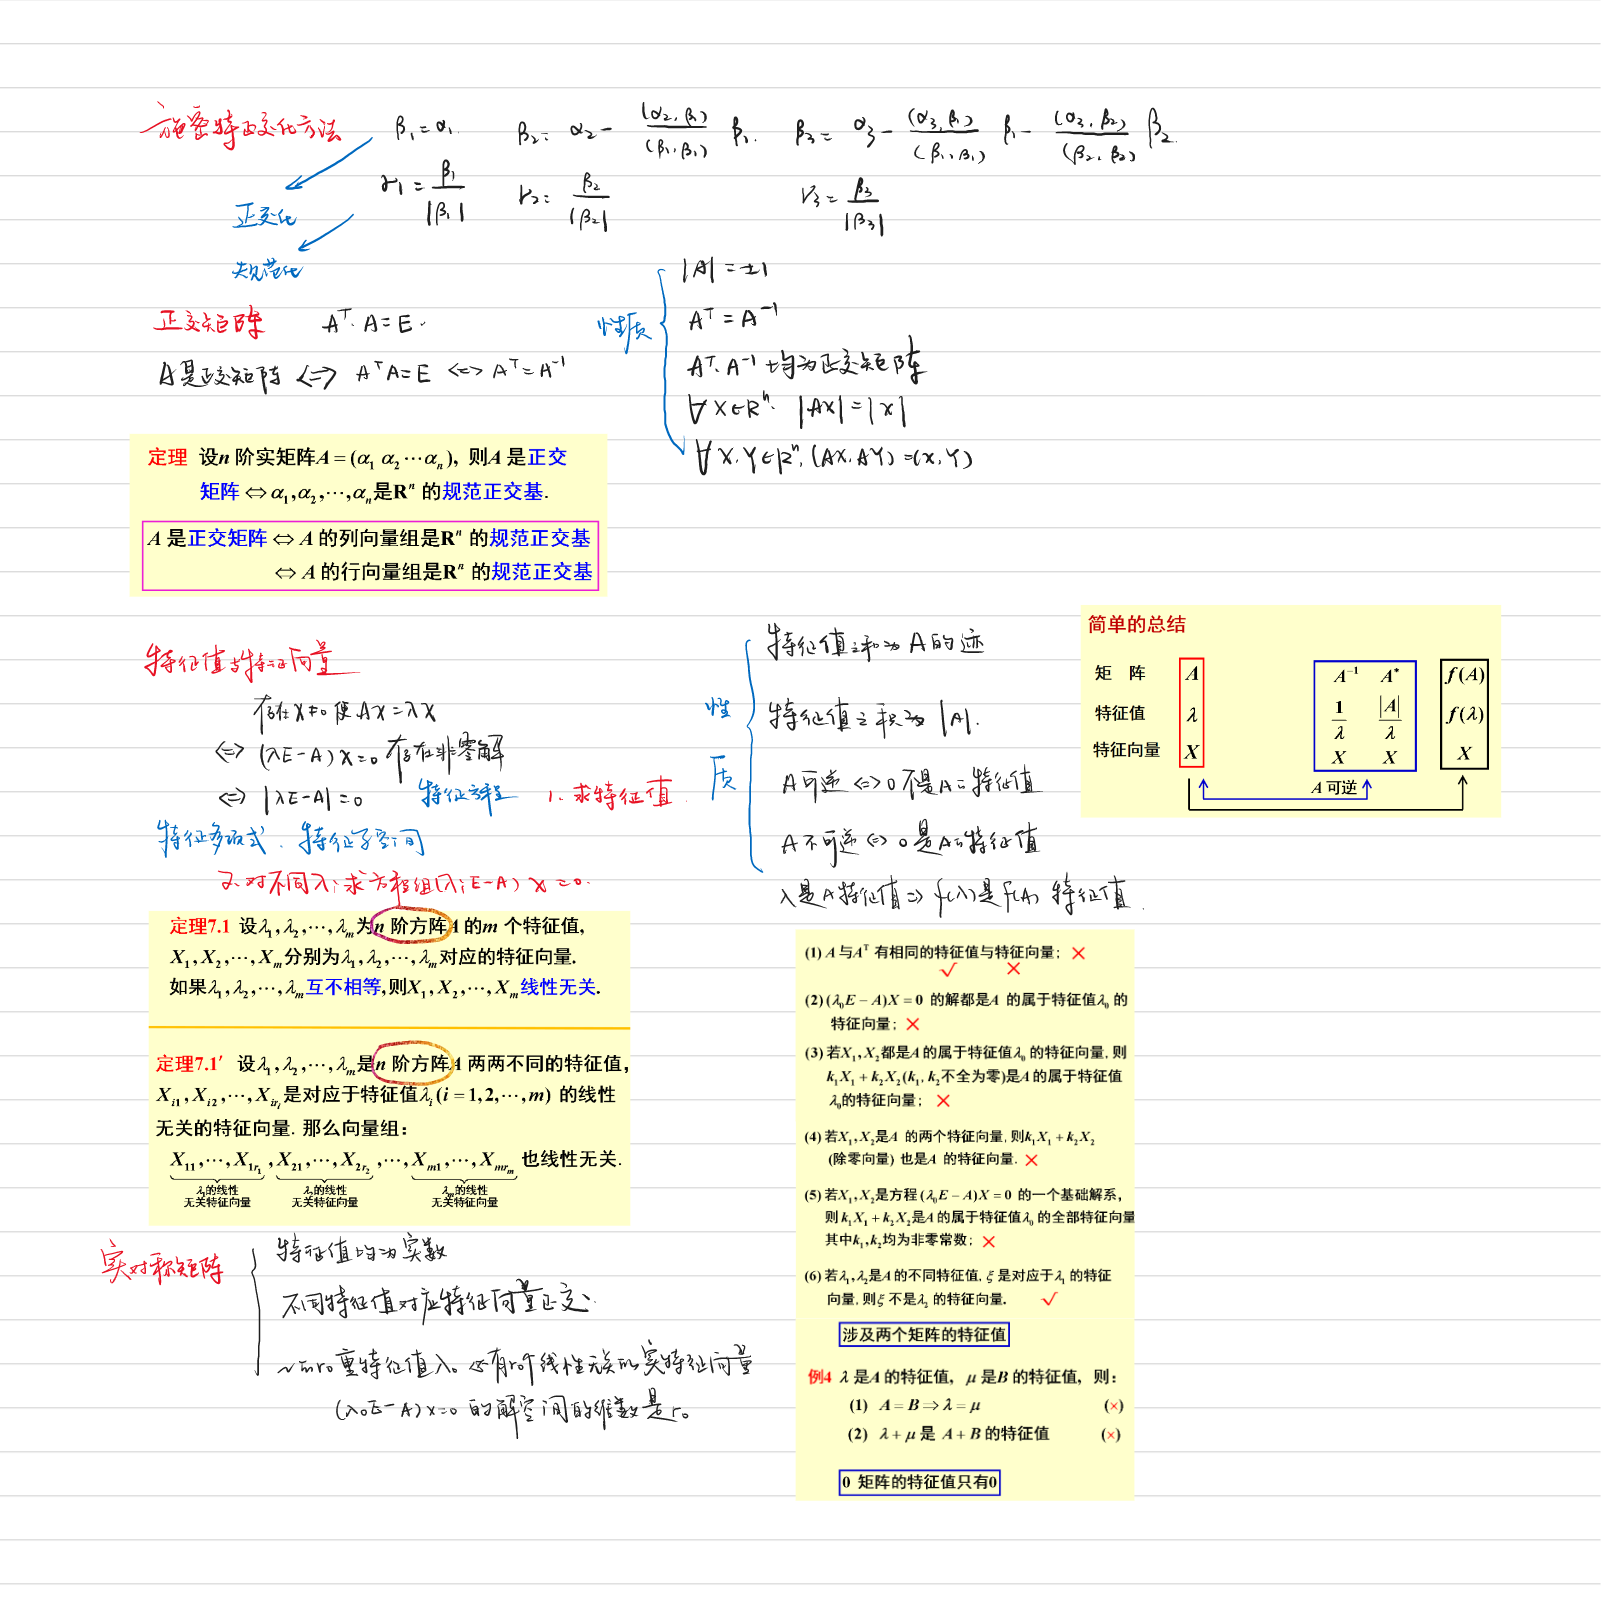 施密特正交化方法 β₁=α₁. β₂= α₂- (α₂,β₁)/(β₁,β₁) β₁. β₃= α₃- (α₃,β₁)/(β₁,β₁) β₁- (α₃,β₂)/(β₂,β₂) β₂.
γ₁= β₁/|β₁| γ₂= β₂/|β₂| γ₃= β₃/|β₃|
正交化
规范化
正交矩阵 Aᵀ·A=E.
A是正交矩阵 <=> AᵀA=E <=> Aᵀ=A⁻¹
性质
|A|=±1
Aᵀ=A⁻¹
Aᵀ.A⁻¹均为正交矩阵
∀X∈Rⁿ. |AX|=|X|
∀X.Y∈Rⁿ,(AX.AY)=(X,Y)
定理 设n 阶实矩阵A=(α₁ α₂ ⋯αₙ), 则A 是正交
矩阵⇔α₁,α₂,⋯,αₙ是Rⁿ 的规范正交基.
A 是正交矩阵⇔ A 的列向量组是Rⁿ 的规范正交基
⇔ A 的行向量组是Rⁿ 的规范正交基
特征值与特征向量
存在X≠0使AX=λX
<=> (λE-A)X=0存在非零解
<=> |λE-A|=0 特征方程 1.求特征值
特征多项式.特征子空间
2.对不同λᵢ求方程组(λᵢE-A)X=0.
性质
特征值之和为A的迹
特征值之积为|A|.
A可逆<=>0不是A之特征值
A不可逆<=>0是A之特征值
λ是A特征值=>f(λ)是f(A)特征值.
简单的总结
矩 阵 A A⁻¹ A* f(A)
特征值 λ 1/λ |A|/λ f(λ)
特征向量 X X X X
A 可逆
定理7.1 设λ₁,λ₂,⋯,λₘ为n 阶方阵A 的m 个特征值,
X₁,X₂,⋯,Xₘ分别为λ₁,λ₂,⋯,λₘ对应的特征向量.
如果λ₁,λ₂,⋯,λₘ互不相等,则X₁,X₂,⋯,Xₘ线性无关.
定理7.1′ 设λ₁,λ₂,⋯,λₘ是n 阶方阵A 两两不同的特征值,
Xᵢ₁,Xᵢ₂,⋯,Xᵢᵣᵢ是对应于特征值λᵢ(i=1,2,⋯,m) 的线性
无关的特征向量. 那么向量组:
X₁₁,⋯,X₁ᵣ₁,X₂₁,⋯,X₂ᵣ₂,⋯,Xₘ₁,⋯,Xₘᵣₘ也线性无关.
λ₁的线性 λ₂的线性 λₘ的线性
无关特征向量 无关特征向量 无关特征向量
实对称矩阵
特征值均为实数
不同特征值对应特征向量正交.
r₀重特征值λ₀必有r₀个线性无关的实特征向量
(λ₀E-A)X=0 的解空间的维数是r₀
(1) A 与Aᵀ 有相同的特征值与特征向量; ×
√ ×
(2) (λ₀E-A)X=0 的解都是A 的属于特征值λ₀ 的
特征向量; ×
(3) 若X₁,X₂都是A 的属于特征值λ₀ 的特征向量,则
k₁X₁+k₂X₂(k₁,k₂不全为零)是A 的属于特征值
λ₀的特征向量; ×
(4) 若X₁,X₂是A 的两个特征向量,则k₁X₁+k₂X₂
(除零向量) 也是A 的特征向量. ×
(5) 若X₁,X₂是方程(λ₀E-A)X=0 的一个基础解系,
则k₁X₁+k₂X₂是A 的属于特征值λ₀ 的全部特征向量
其中k₁,k₂均为非零常数; ×
(6) 若λ₁,λ₂是A 的不同特征值, ξ 是对应于λ₁ 的特征
向量,则ξ 不是λ₂ 的特征向量. √
涉及两个矩阵的特征值
例4 λ 是A 的特征值, μ 是B 的特征值, 则:
(1) A=B⇒λ=μ (×)
(2) λ+μ 是 A+B 的特征值 (×)
0 矩阵的特征值只有0